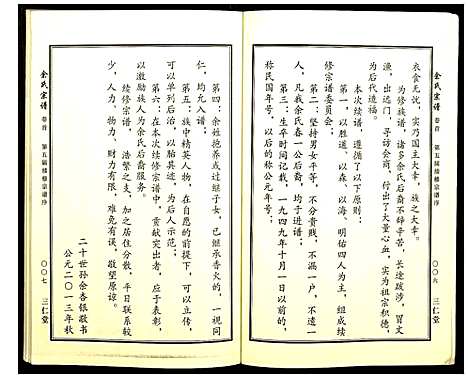 余氏宗谱
卷首
第五届续修宗谱序
〇〇六
三仁堂
衣食无忧，实乃国主大幸，族之大幸。
为修族谱，诸多余氏后裔不辞辛苦，长途跋涉，冒文
渔，出远门，寻访会商，付出了大量心血，实为祖宗积德，
为后代造福。
本次续谱，遵循了以下原则：
第一，以胜道、以森、以海、明佑四人为主，组成续
修宗谱委员会；
第二：坚持男女平等，不分贵贱，不漏一户，不遗一
人，凡我余氏春一公后裔，均于进谱；
第三：生卒时间记载，一九四九年十月一日以前的，
称民国年号，以后的称公元年号；
第四：余姓抱养或过继子女，已继承香火的，一视同
仁，均允入谱；
第五：族中精英人物，在自愿的前提下，可以立传，
可以单列后治，以贻其迹，为后人示范；
第六：在本次续修宗谱中，贡献突出者，应于表彰，
以激励族人为余氏后裔服务。
续修宗谱，浩繁之支，加之居住分散，平日联系较
少，人力、物力、财力有限，难免有误，敬望原谅。
二十世孙余杏银敬书
公元二〇一三年秋
余氏宗谱
卷首
第五届续修宗谱序
〇〇七
三仁堂